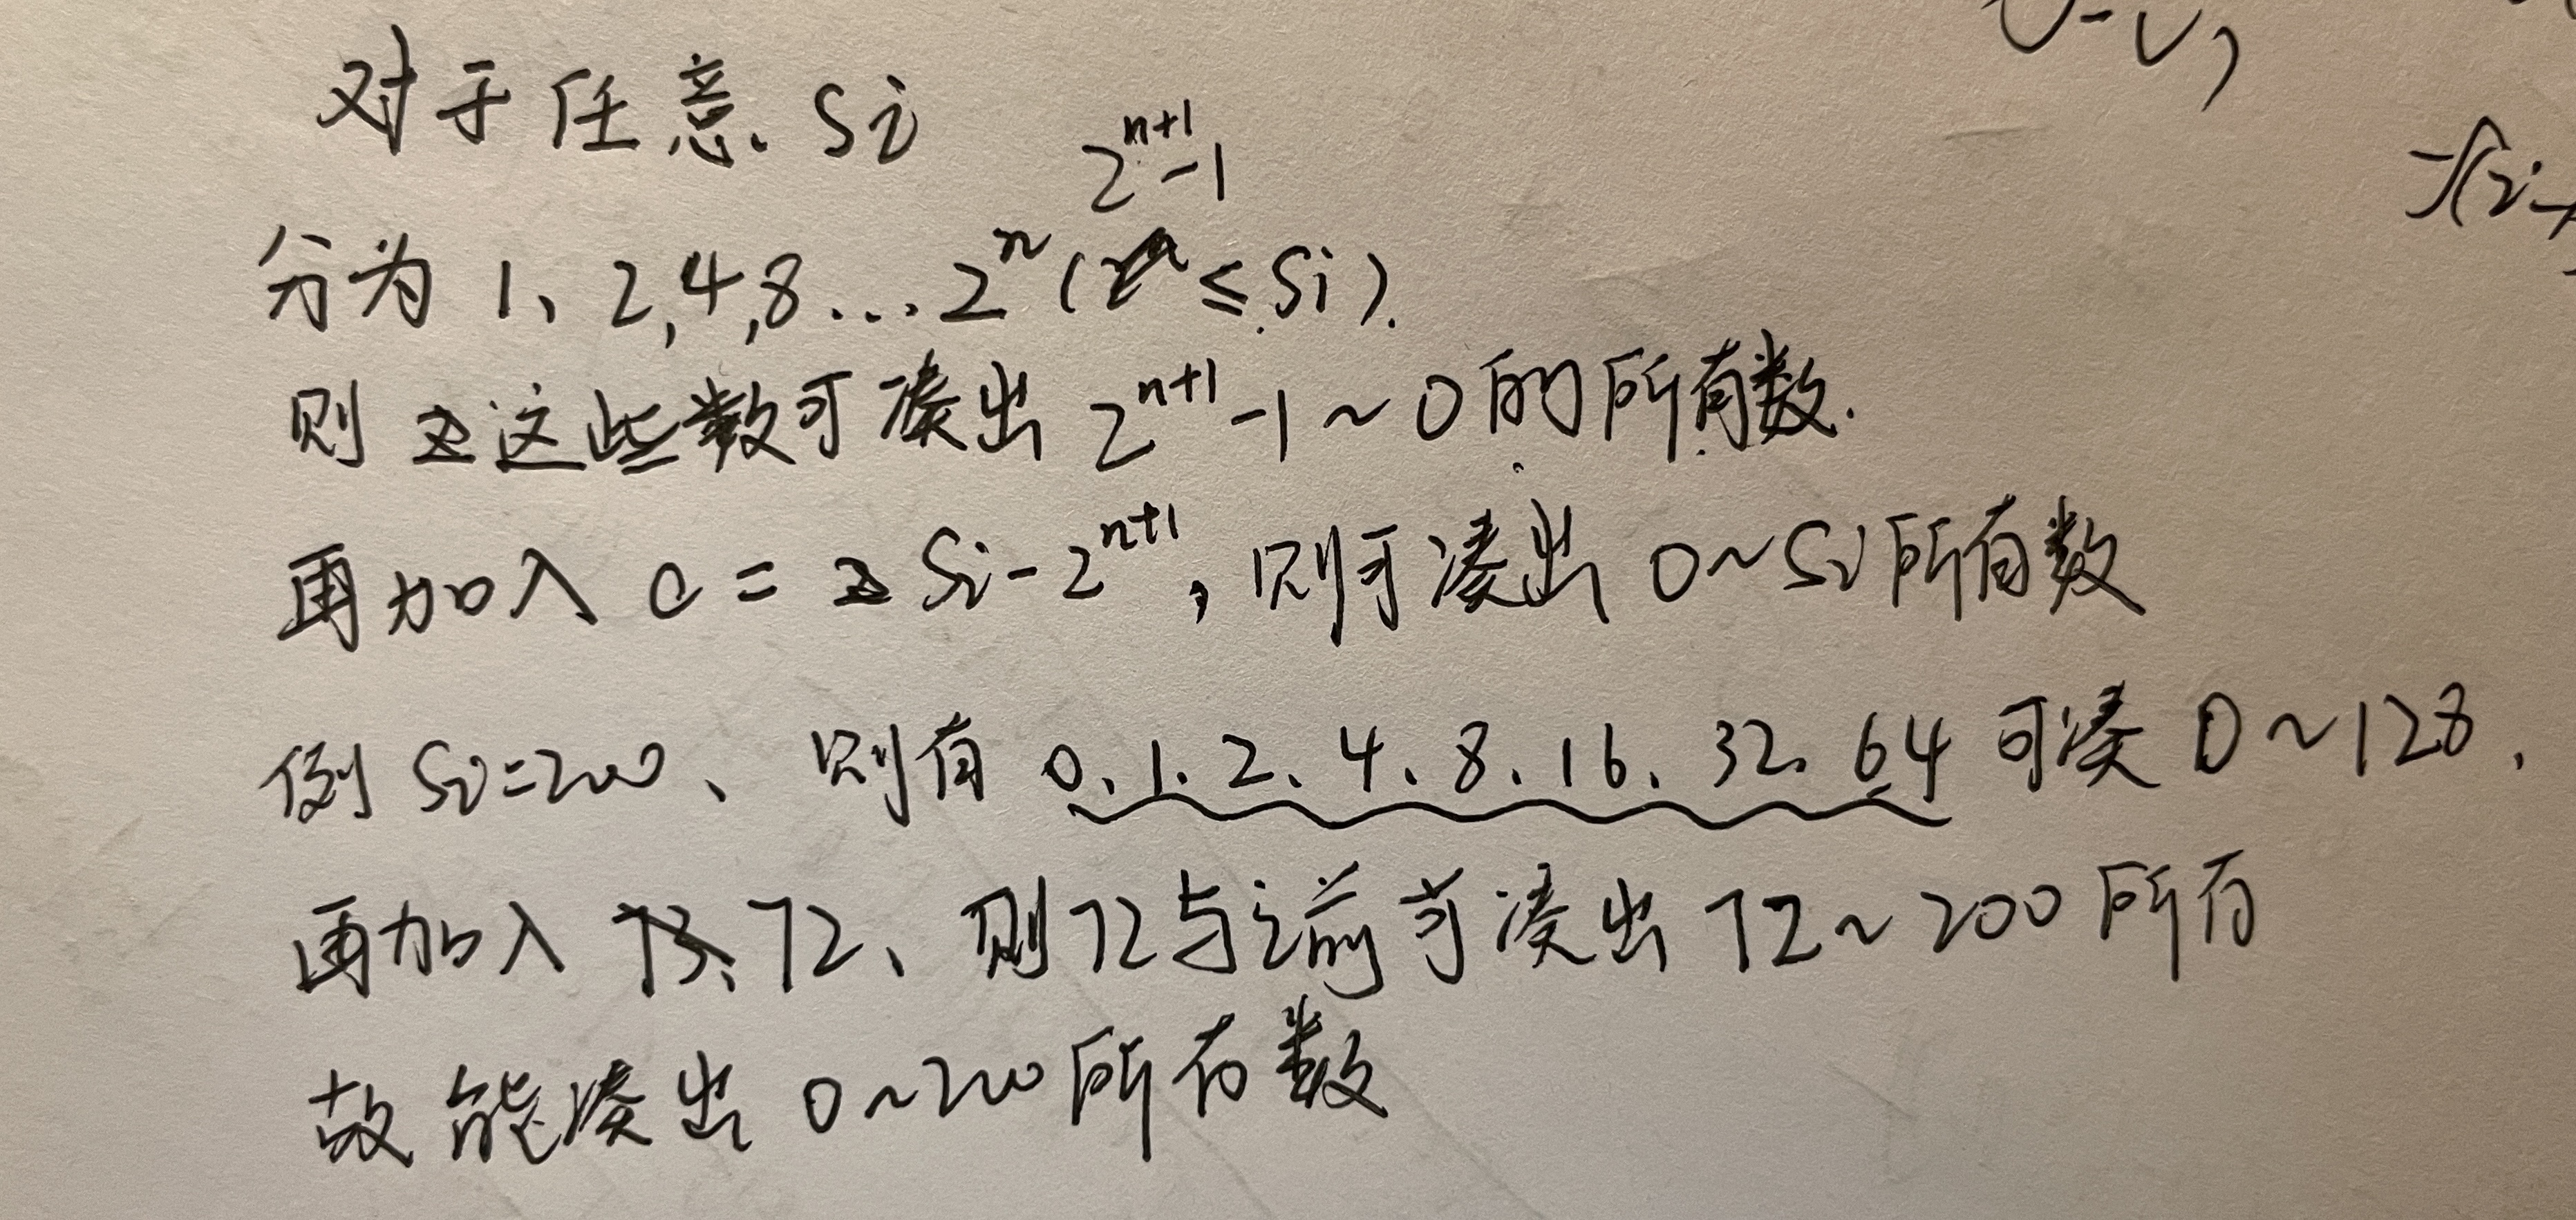 对于任意 Si
2^{n+1}-1
分为 1、2,4,8...2^n ( ≤ Si).
则 这些数可凑出 2^{n+1}-1～0的所有数.
再加入 c = Si-2^{n+1}, 则可凑出 0～Si所有数
例 Si=200、则有 0.1.2.4.8.16.32.64 可凑 0～128,
再加入 72、则72与之前可凑出 72～200 所有
故能凑出 0～200所有数